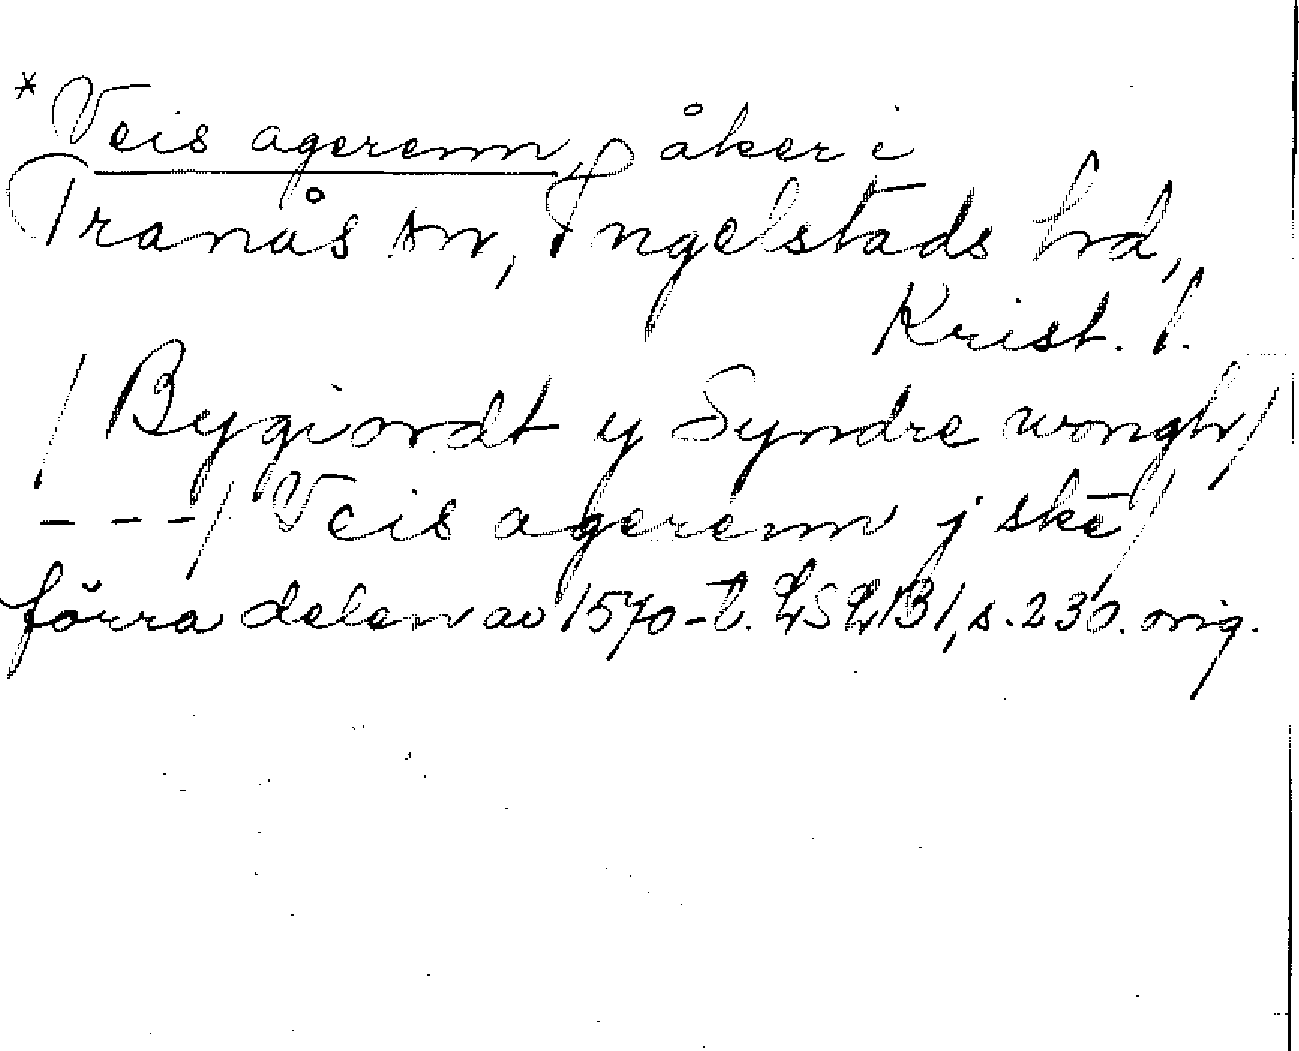 * Veis agerenn, åker i
Tranås sn, Ingelstads hd,
Krist. l.
/ Bygiordt y Syndre wongh /
- - - / Veis agerenn j skē /
förra delen av 1570-t. LSLB1, s. 230. orig.